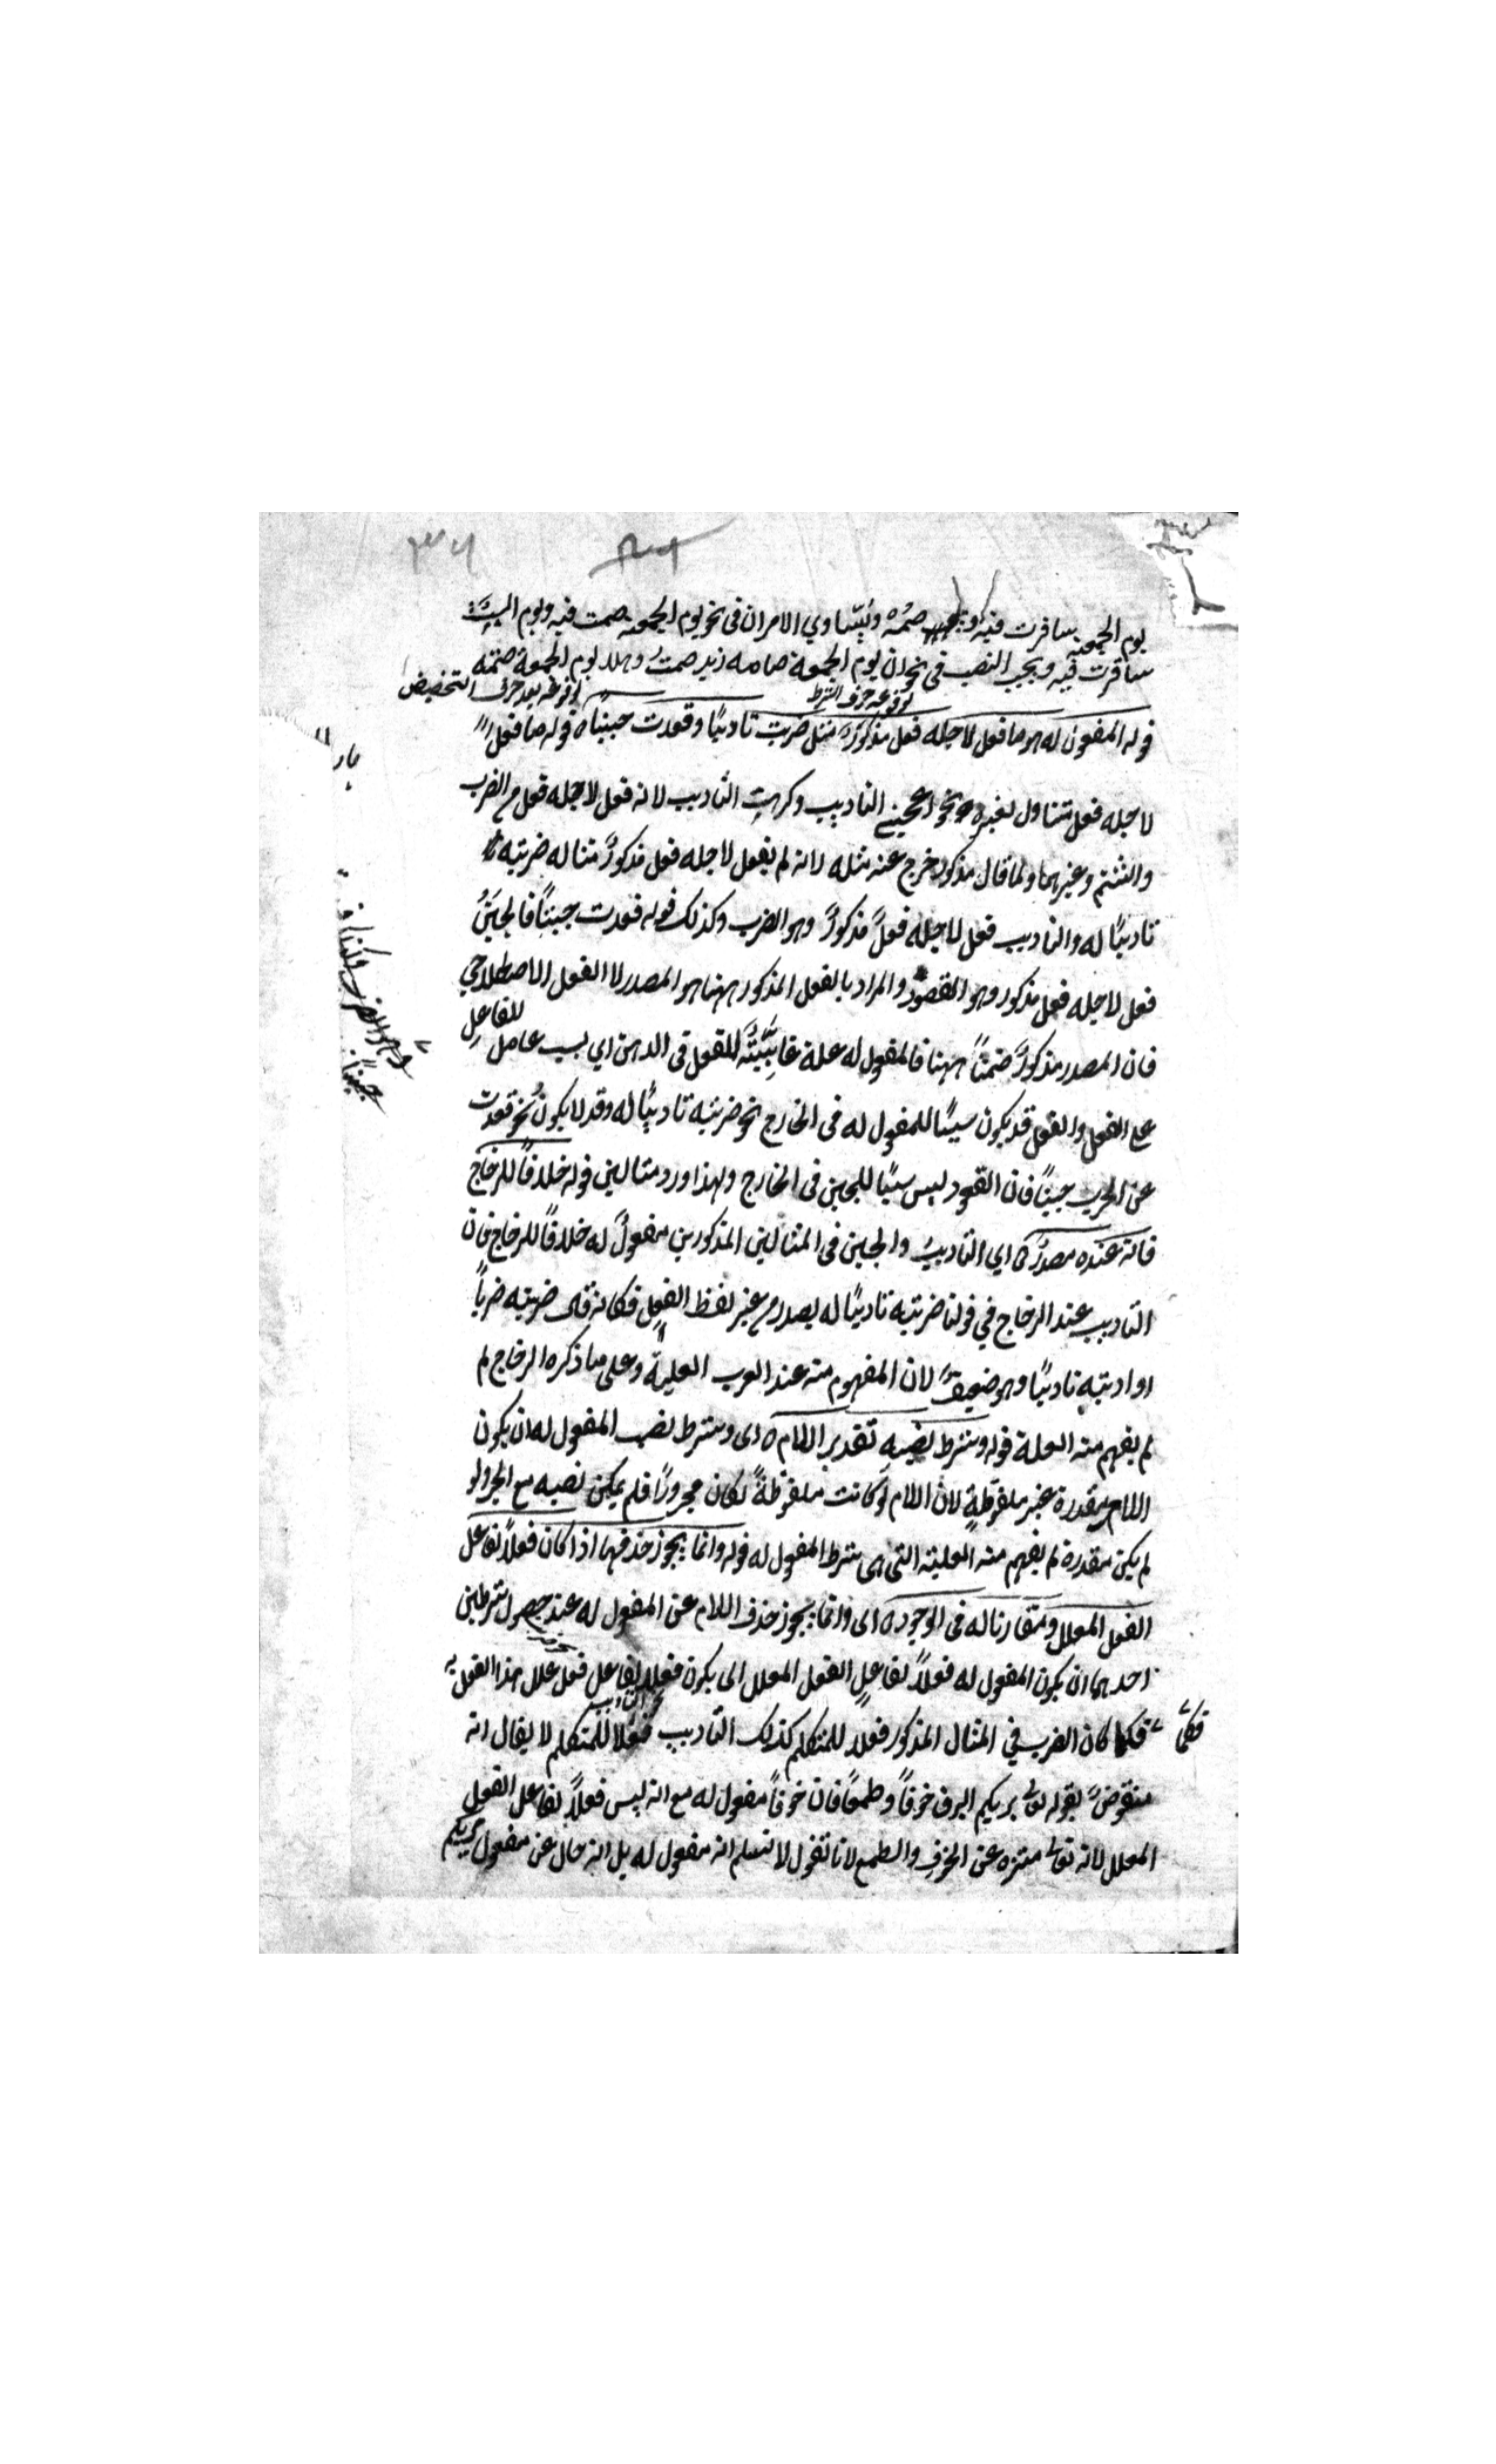 يوم الجمعة سافرت فيه صمته ويتساوي الامران في نحو يوم الجمعة صمت فيه ويوم السبت
سافرت فيه ويجب النصب في نحو ان يوم الجمعة صامه زيد صمت وهلا يوم الجمعة صمته
لوقوعه حرف الشرط
لوقوعه بعد حرف التخضيض
قوله المفعول له هو ما فعل لاجله فعل مذكور مثل ضربت تاديبًا وقعدت جبنًا ه قوله ما فعل
لاجله فعل يتناول لغيره نحو اعجبني التاديب وكرهت التاديب لانه فعل لاجله فعل من الضرب
والشتم وغيرهما ولما قال مذكور خرج عنه مثله لانه لم يفعل لاجله فعل مذكورٌ مثاله ضربته
تاديبًا له والتاديب فعل لاجله فعلٌ مذكورٌ وهو الضرب وكذلك قوله قعدت جبنًا فالجبنُ
فعل لاجله فعل مذكور وهو القعود والمراد بالفعل المذكور ههنا هو المصدر لا الفعل الاصطلاحي
للفاعل
فان المصدر مذكورٌ ضمنًا ههنا فالمفعول له علة غايئيّة للفعل في الذهن اي سبب حامل
على الفعل والفعل قد يكون سببًا للمفعول له في الخارج نحو ضربته تاديبًا له وقد لا يكون نحو قعدت
عن الحرب جبنًا فان القعود ليس سببًا للجبن في الخارج ولهذا اورد مثالين قوله خلافًا للزجاج
فانه عنده مصدرٌ اي التاديب والجبن في المثالين المذكورين مفعولٌ له خلافًا للزجاج فان
التاديب عند الزجاج في قولنا ضربته تاديبًا له مصدر من غير لفظ الفعل فكانه قال ضربته ضربًا
او ادبته تاديبًا وهو ضعيفٌ لان المفهوم منه عند العرب العلية وعلى ما ذكره الزجاج لم
لم يفهم منه العلة قوله وشرط نصبه تقدير اللام ه اى وشرط نصب المفعول له ان يكون
اللام مقدرة غير ملفوظةٍ لان اللام لو كانت ملفوظةً لكان مجرورًا فلم يمكن نصبه مع الجر ولو
لم يكن مقدرة لم يفهم منه العلية التى هى شرط المفعول له قوله وانما يجوز حذفها اذا كان فعلًا لفاعل
الفعل المعلل ومقارنا له في الوجود ه اى وانما يجوز حذف اللام عن المفعول له عند حصول شرطين
احدهما ان يكون المفعول له فعلًا لفاعل الفعل المعلل اى يكون فعلًا لفاعل فعل علل هذا الفعل به
فكما كان الضرب في المثال المذكور فعلًا للمتكلم كذلك التاديب فعلا للمتكلم لا يقال انه
فكما
منقوضٌ بقوله تعالى يريكم البرق خوفًا وطمعًا فان خوفًا مفعول له مع انه ليس فعلًا لفاعل الفعل
المعلل لانه تعالى منزه عن الخوف والطمع لانا نقول لا نسلم انه مفعول له بل انه حال عن مفعول يريكم